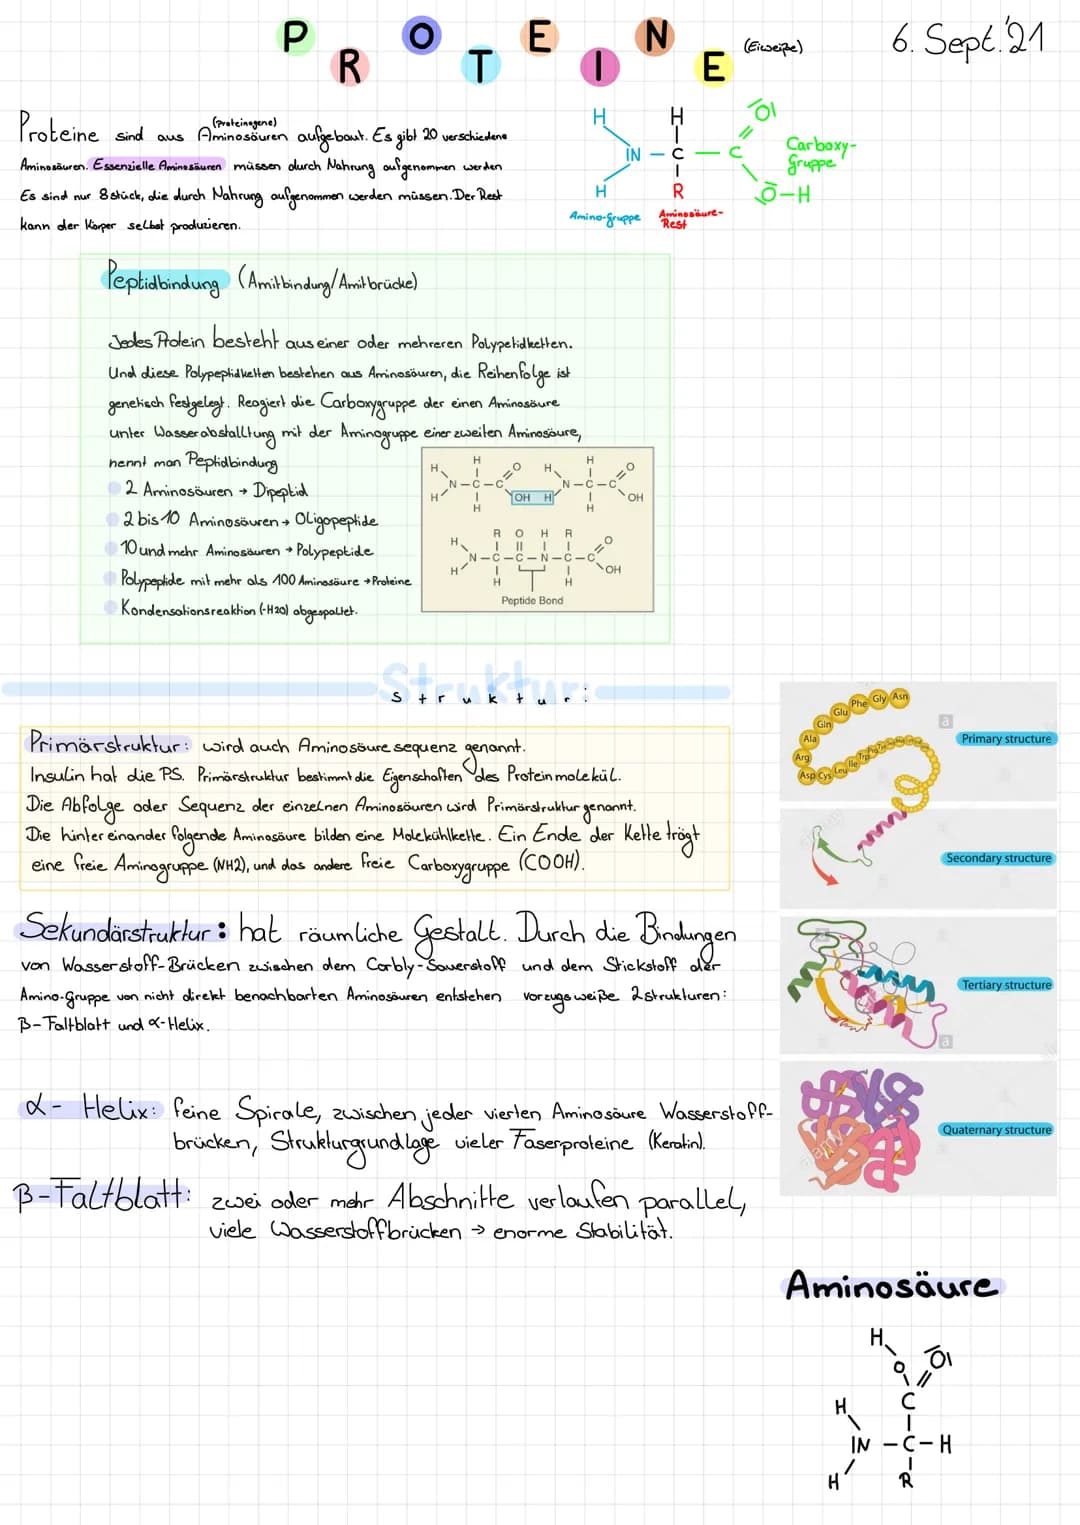 PROTEINE (Eiweiße) 6. Sept.'21
Proteine sind aus (proteinogene) Aminosäuren aufgebaut. Es gibt 20 verschiedene
Aminosäuren. Essenzielle Aminosäuren müssen durch Nahrung aufgenommen werden
Es sind nur 8 stück, die durch Nahrung aufgenommen werden müssen. Der Rest
kann der Körper selbst produzieren.
H H IOI
IN – C – C
H R O–H
Carboxy-
Gruppe
Amino-Gruppe
Aminosäure-
Rest
Peptidbindung (Amitbindung/Amitbrücke)
Jedes Protein besteht aus einer oder mehreren Polypetidketten.
Und diese Polypeptidketten bestehen aus Aminosäuren, die Reihenfolge ist
genetisch festgelegt. Reagiert die Carboxygruppe der einen Aminosäure
unter Wasserabstalltung mit der Aminogruppe einer zweiten Aminosäure,
nennt man Peptidbindung
2 Aminosäuren → Dipeptid
2 bis 10 Aminosäuren → Oligopeptide
10 und mehr Aminosäuren → Polypeptide
Polypeptide mit mehr als 100 Aminosäure → Proteine
Kondensationsreaktion (-H2O) abgespaltet.
H H O H H O
N–C–C N–C–C
H H OH H H OH
H R O H R O
N–C–C–N–C–C
H H H OH
Peptide Bond
Struktur:
Struktur:
Primärstruktur: wird auch Aminosäuresequenz genannt.
Insulin hat die PS. Primärstruktur bestimmt die Eigenschaften des Proteinmolekül.
Die Abfolge oder Sequenz der einzelnen Aminosäuren wird Primärstruktur genannt.
Die hintereinander folgende Aminosäure bilden eine Molekühlkette. Ein Ende der Kette trägt
eine freie Aminogruppe (NH2), und das andere freie Carboxygruppe (COOH).
Asn Gly Phe Glu Gln Ala Arg Asp Cys Leu Ile Trp
Primary structure
Secondary structure
Tertiary structure
Quaternary structure
Sekundärstruktur: hat räumliche Gestalt. Durch die Bindungen
von Wasserstoff-Brücken zwischen dem Carbly-Sauerstoff und dem Stickstoff der
Amino-Gruppe von nicht direkt benachbarten Aminosäuren entstehen vorzugsweiße 2 strukturen:
β-Faltblatt und α-Helix.
α- Helix: feine Spirale, zwischen jeder vierten Aminosäure Wasserstoff-
brücken, Strukturgrundlage vieler Faserproteine (Keratin).
β-Faltblatt: zwei oder mehr Abschnitte verlaufen parallel,
viele Wasserstoffbrücken → enorme Stabilität.
Aminosäure
H
O IOI
H C
IN –C–H
H R